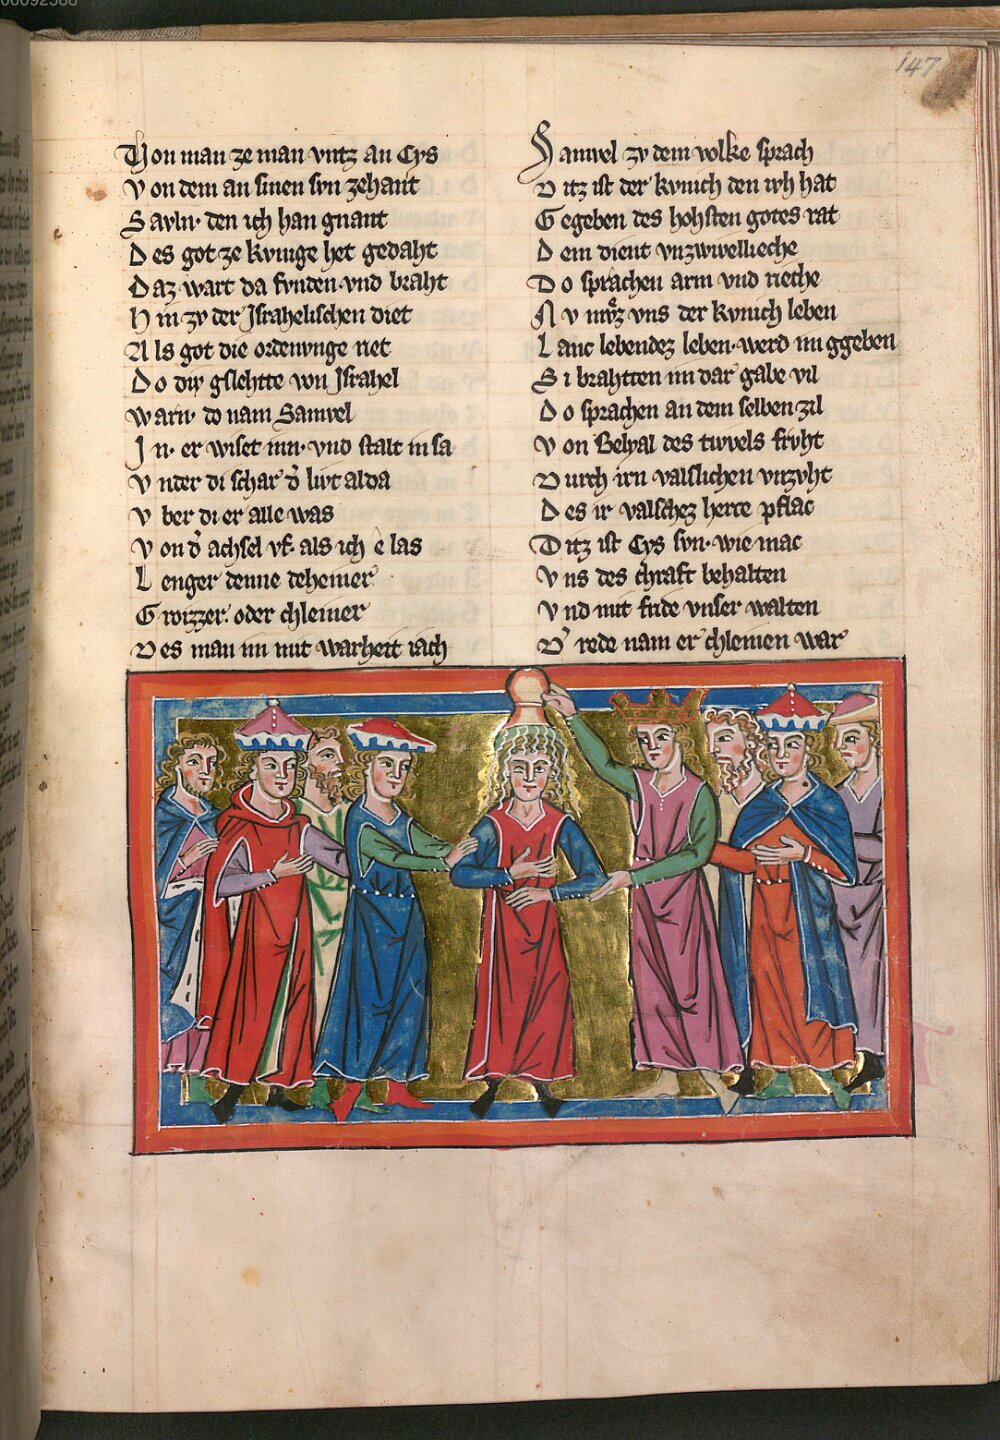 00092588
147
Von man ze man vntz an Cys
Von dem an sinen svn zehant
Savln· den ich han gnant
Des got ze kvnige het gedaht
Daz wart da fvnden· vnd braht
Hin zv der Jsrahelischen diet
Als got die ordenvnge riet
Do div gslehtte von Jsrahel
warn· do nam Samvel
Jn· er wiset inn· vnd stalt in sa
Vnder di schar d̾ livt alda
Vber di er alle was
Von d̾ achsel vf· als ich e las
Lenger denne deheiner
Grozzer· oder chleiner
Des man im mit warheit iach
Samvel zv dem volke sprach
Ditz ist der kvnich den ivh hat
Gegeben des hohsten gotes rat
Dem dient vnzwivelliche
Do sprachen arm vnd riche
Nv mvͦz vns der kvnich leben
Lanc lebendez leben· werd im ggeben
Si brahtten im dar gabe vil
Do sprachen an dem selben zil
Von Belyal des tivvels frvht
Durch irn valslichen vnzvht
Des ir valschez herce pflac
Ditz ist Cys svn· wie mac
Vns des chraft behalten
Vnd mit fride vnser walten
D̾ rede nam er chleinen war